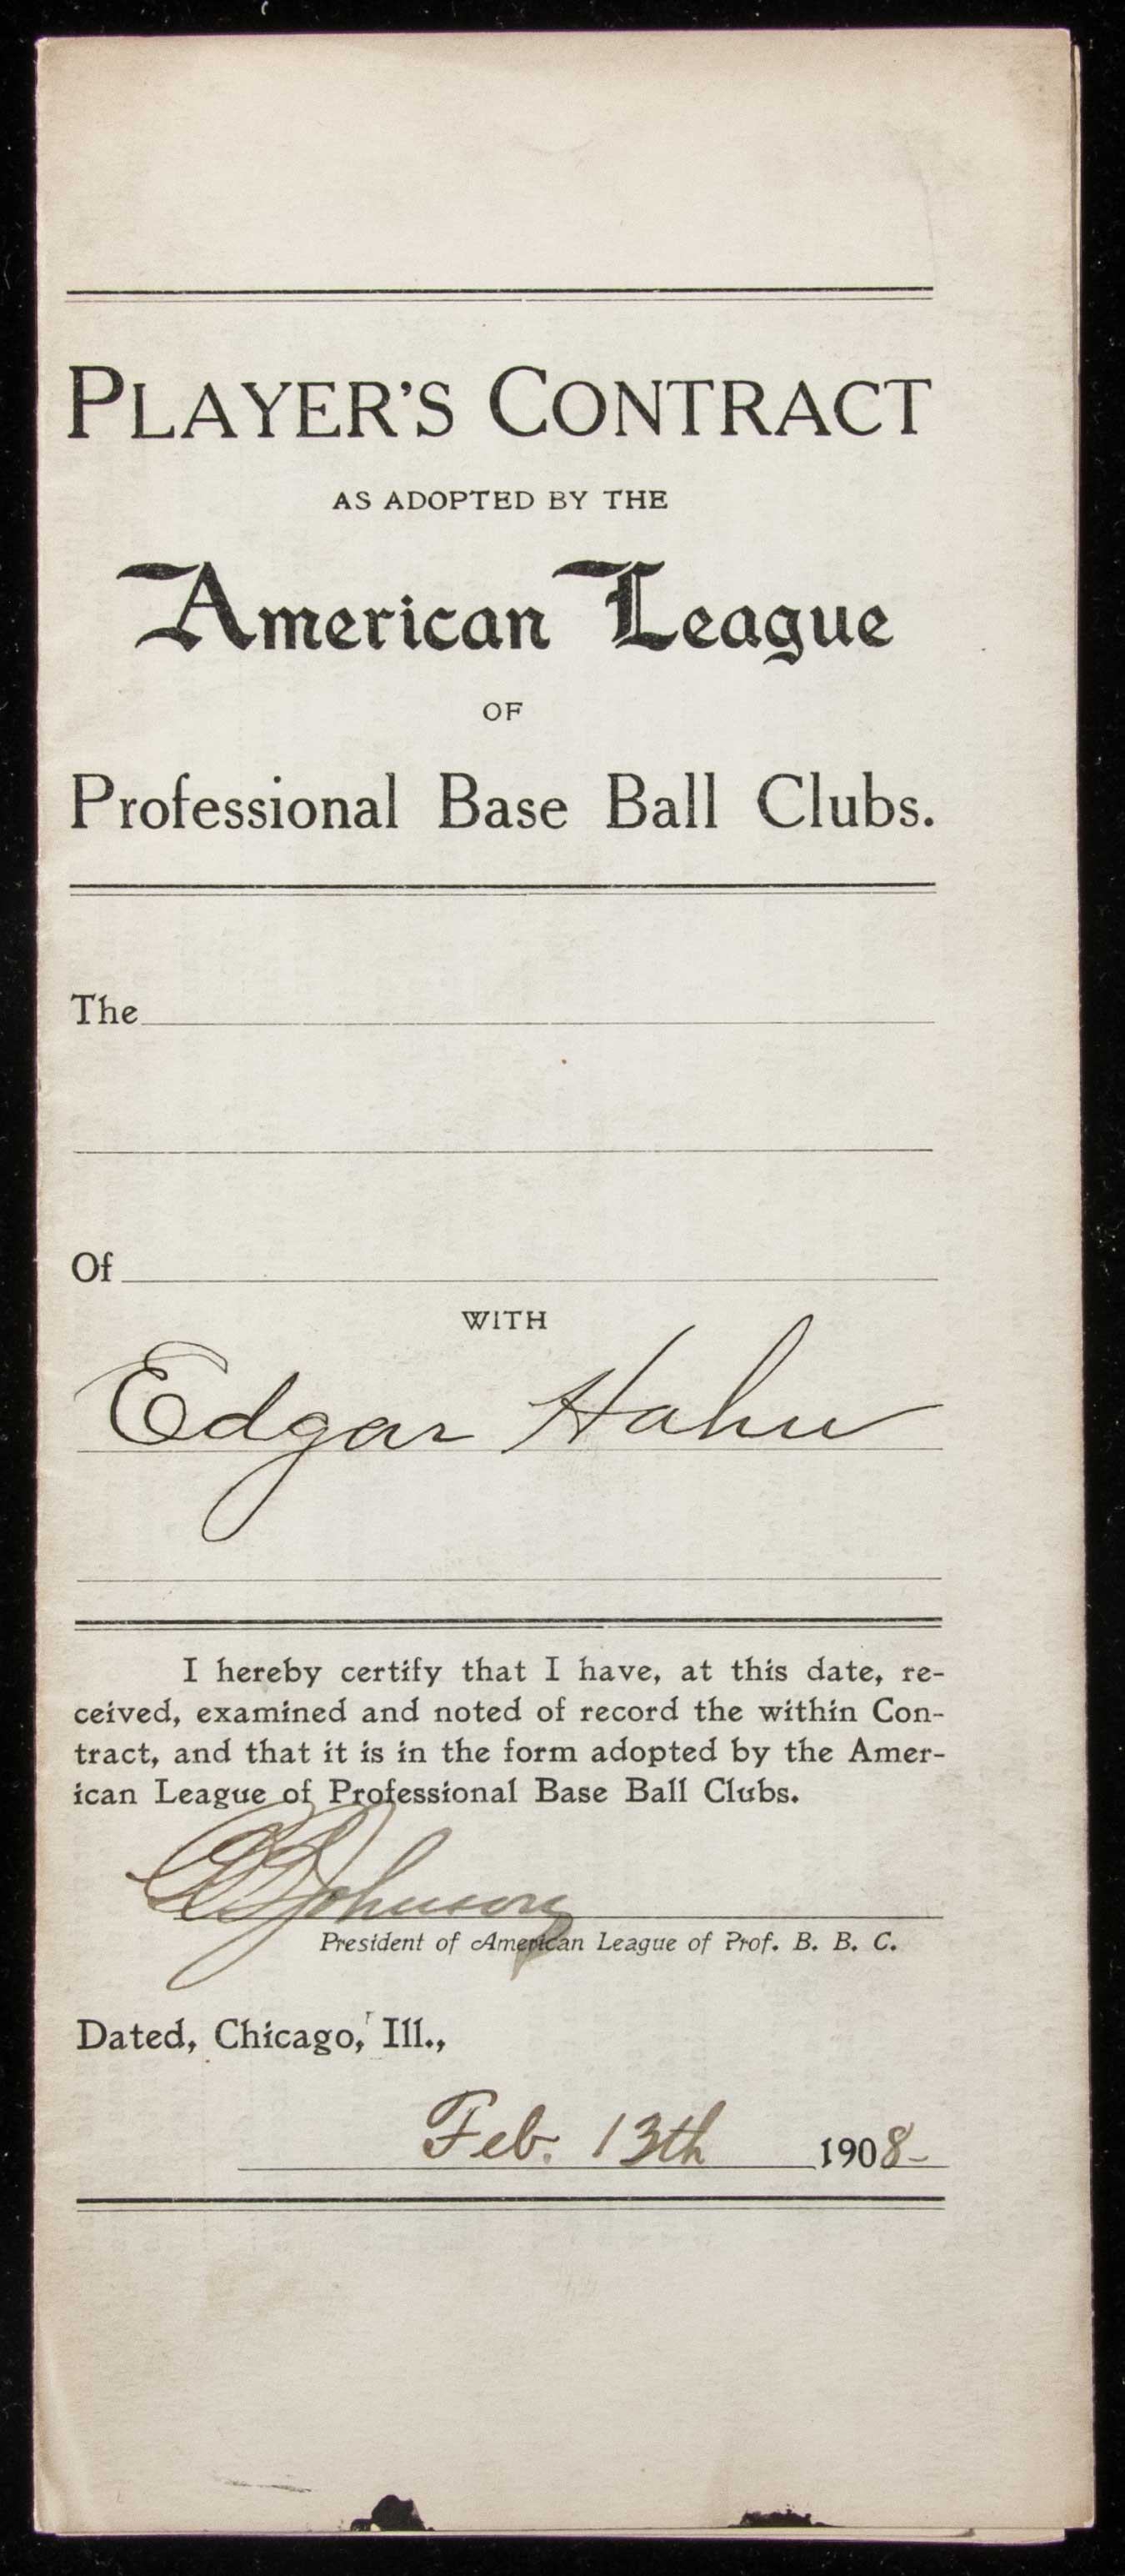 PLAYER'S CONTRACT
AS ADOPTED BY THE
American League
OF
Professional Base Ball Clubs.
The
Of
WITH
Edgar Hahn
I hereby certify that I have, at this date, re-
ceived, examined and noted of record the within Con-
tract, and that it is in the form adopted by the Amer-
ican League of Professional Base Ball Clubs.
BBJohnson
President of American League of Prof. B. B. C.
Dated, Chicago, Ill.,
Feb. 13th 1908-